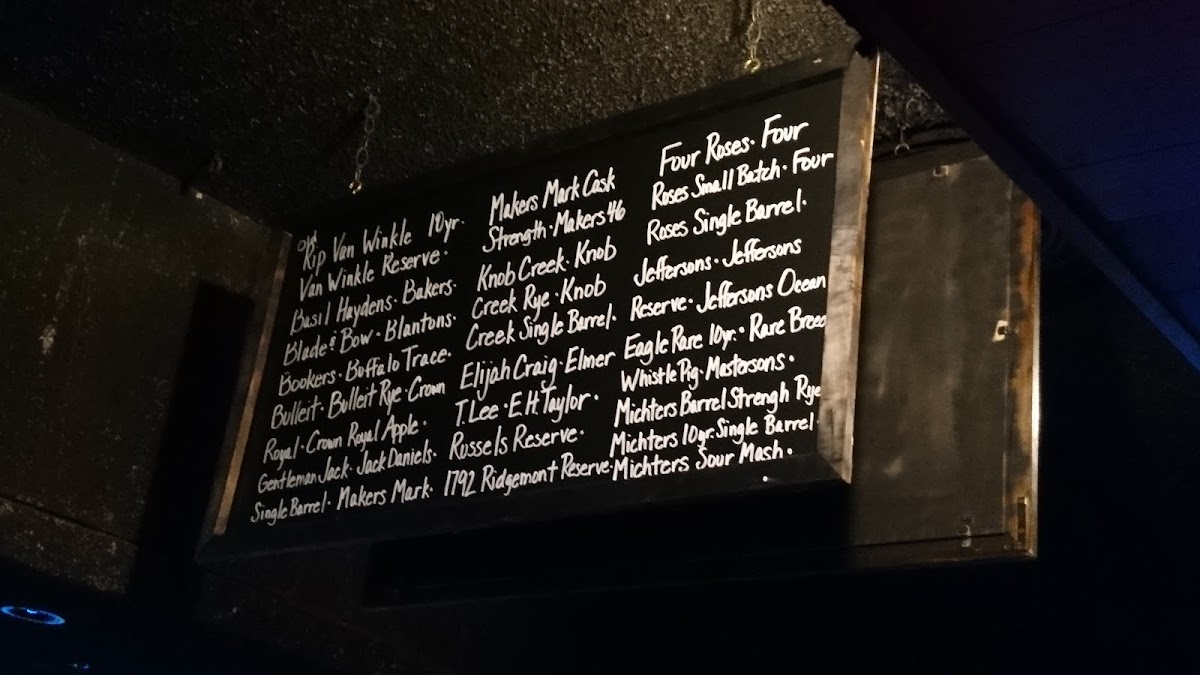 Old
Rip Van Winkle 10yr.
Van Winkle Reserve.
Basil Haydens. Bakers.
Blade & Bow. Blantons.
Bookers. Buffalo Trace.
Bulleit. Bulleit Rye. Crown
Royal. Crown Royal Apple.
Gentleman Jack. Jack Daniels.
Single Barrel. Makers Mark.
Makers Mark Cask
Strength. Makers 46
Knob Creek. Knob
Creek Rye. Knob
Creek Single Barrel.
Elijah Craig. Elmer
T. Lee. E H Taylor.
Russels Reserve.
1792 Ridgemont Reserve.
Four Roses. Four
Roses Small Batch. Four
Roses Single Barrel.
Jeffersons. Jeffersons
Reserve. Jeffersons Ocean
Eagle Rare 10yr. Rare Breed
Whistle Pig. Mastersons.
Michters Barrel Strengh Rye
Michters 10yr. Single Barrel.
Michters Sour Mash.